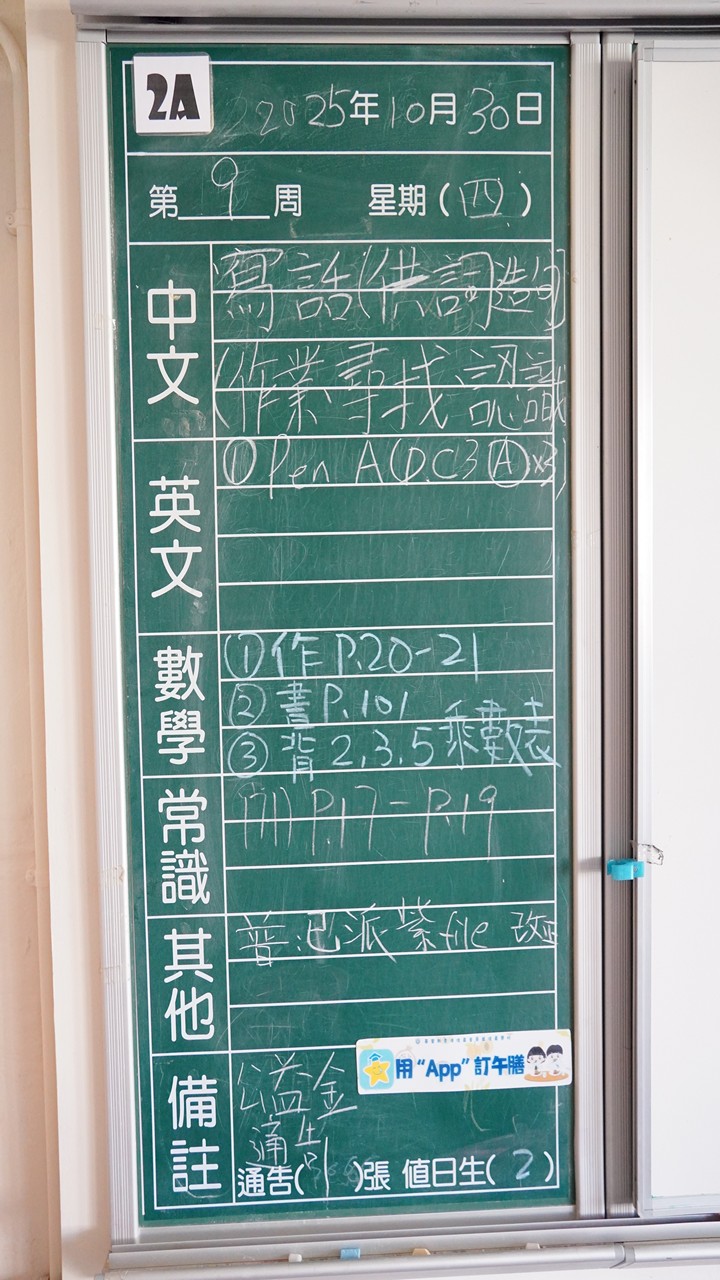 2A
2025年10月30日
第 9 周 星期(四)
中文
寫話(供詞造句)
(作業尋找 認識
英文
① Pen A (P.C3
數學
①作 P.20-21
②書 P.101
③背 2,3,5 乘數表
常識
P.17-P.19
其他
普:已派紫file 改正
備註
用“App”訂午膳
公益金
通告
通告(1)張 值日生(2)